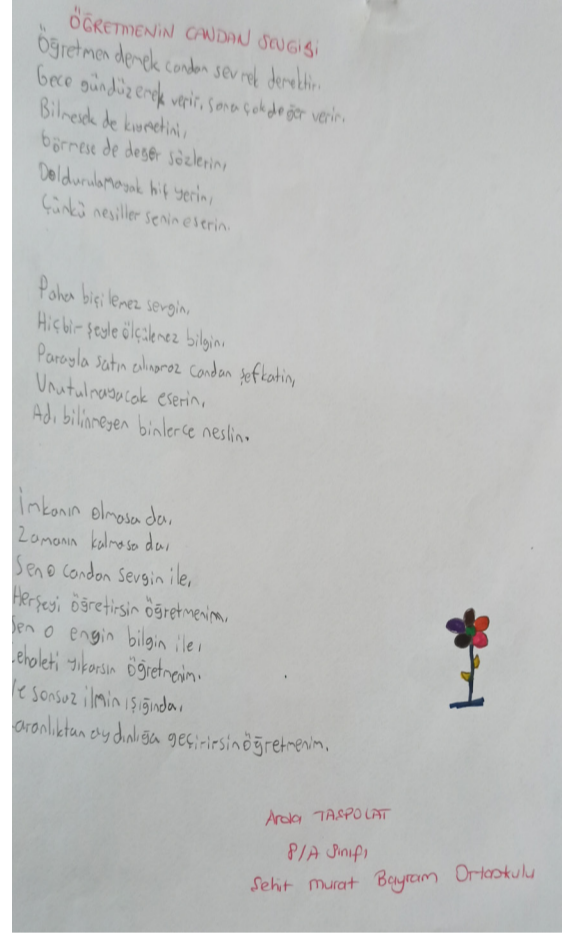 ÖĞRETMENİN CANDAN SEVGİSİ
Öğretmen demek candan sevmek demektir.
Gece gündüz emek verir, sana çok değer verir.
Bilmesek de kıymetini,
Görmese de değer sözlerin,
Doldurulamayak hiç yerin,
Çünkü nesiller senin eserin.
Paha biçilemez sevgin,
Hiçbir şeyle ölçülemez bilgin,
Parayla satın alınamaz candan şefkatin,
Unutulmayacak eserin,
Adı bilinmeyen binlerce neslin.
İmkanın olmasa da,
Zamanın kalmasa da,
Sen o candan sevgin ile,
Herşeyi öğretirsin öğretmenim,
Sen o engin bilgin ile,
ehaleti yıkarsın öğretmenim.
Ve sonsuz ilmin ışığında,
aranlıktan aydınlığa geçirirsin öğretmenim.
Arda TAŞPOLAT
8/A Sınıfı
Şehit Murat Bayram Ortaokulu